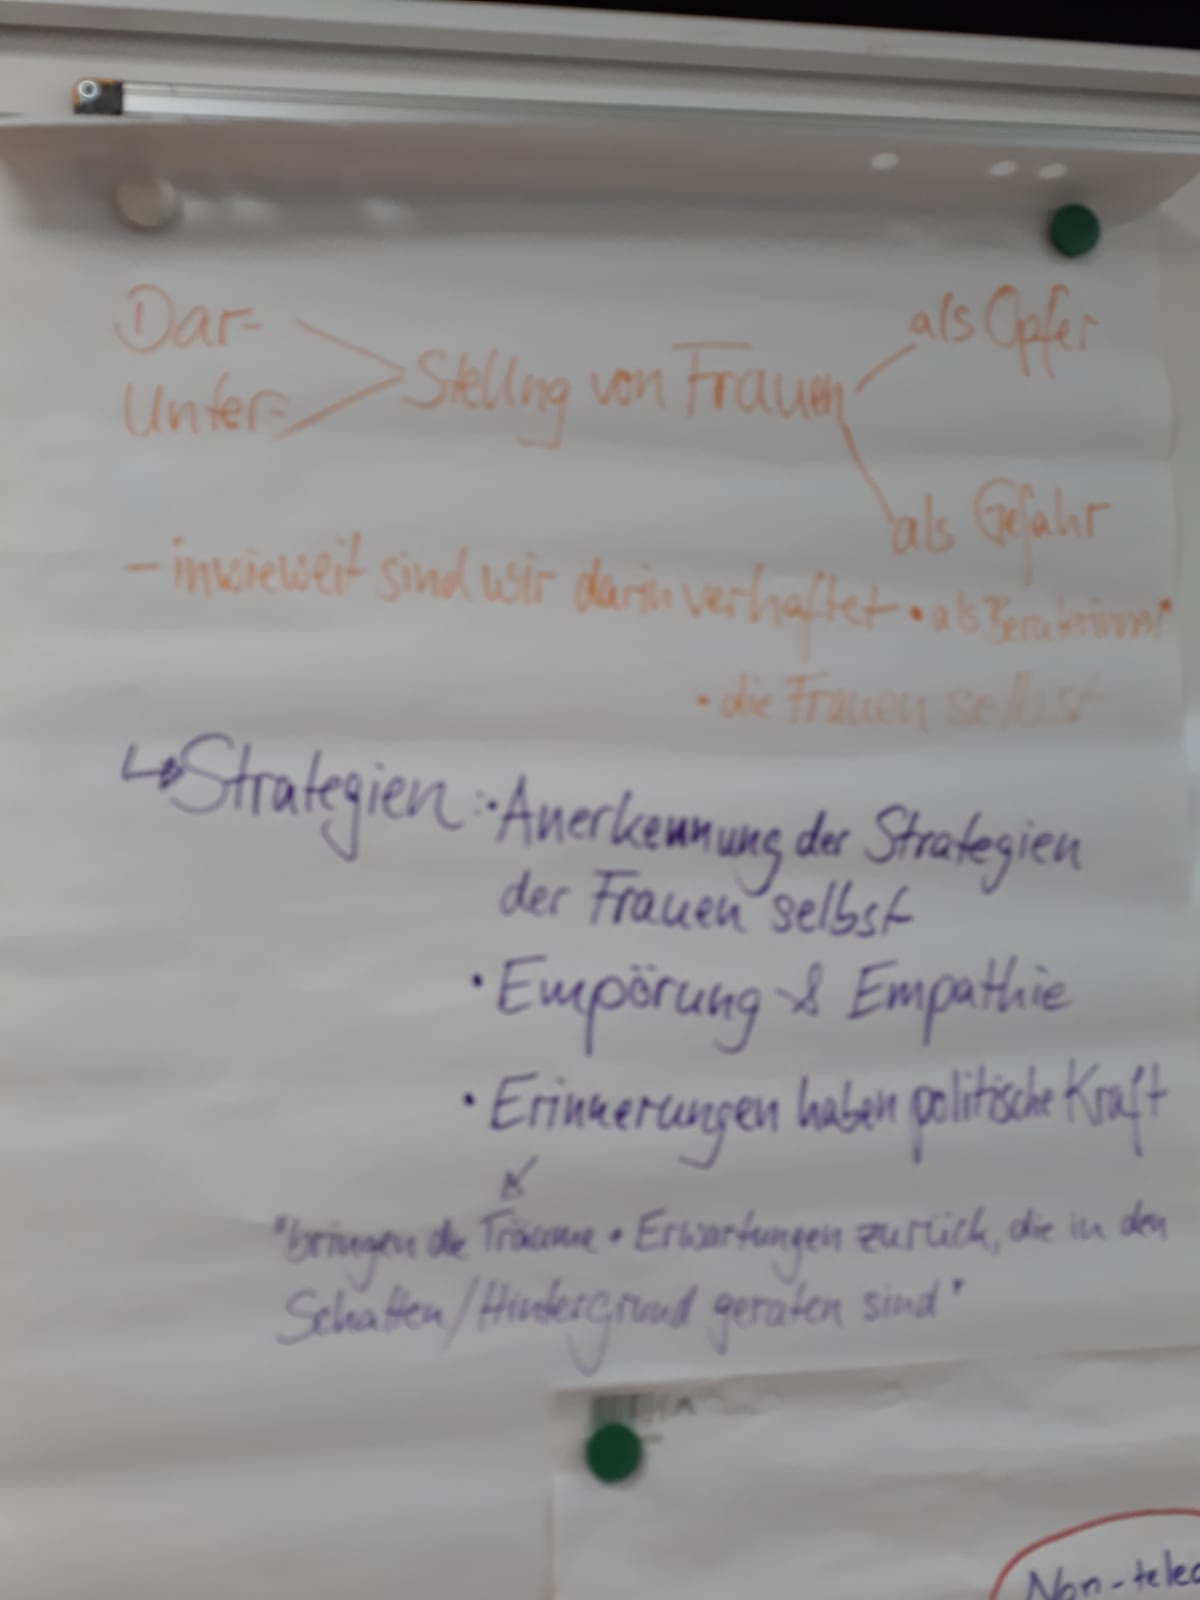 Dar-
Unter-
Stellng von Frauen
als Opfer
als Gefahr
- inwieweit sind wir darin verhaftet • als
• die Frauen selbst
↳ Strategien: • Anerkennung der Strategien
der Frauen selbst
• Empörung & Empathie
• Erinnerungen haben politische Kraft
"bringen die Träume + Erwartungen zurück, die in den
Schatten/Hintergrund geraten sind"
Non-telec